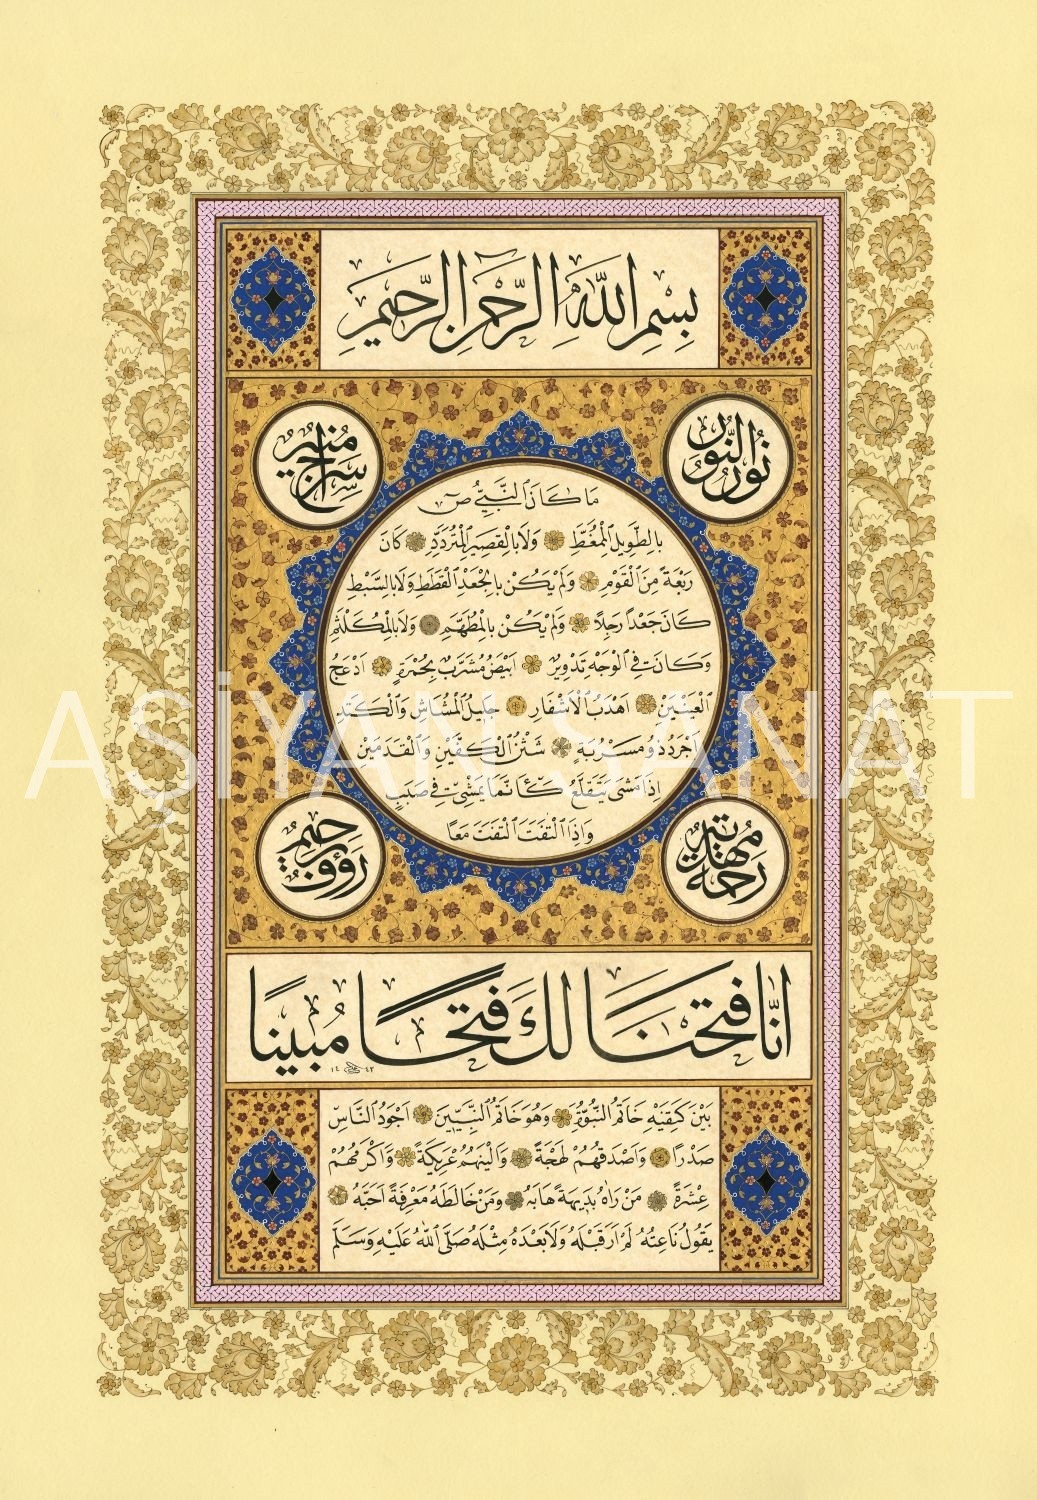 بِسْمِ اللّٰهِ الرَّحْمٰنِ الرَّحِيمِ
نُورُ النُّورِ
سِرَاجٌ مُنِيرٌ
مَا كَانَ النَّبِيُّ ص
بِالطَّوِيلِ الْمُمَّغِطِ وَلَا بِالْقَصِيرِ الْمُتَرَدِّدِ كَانَ
رَبْعَةً مِنَ الْقَوْمِ وَلَمْ يَكُنْ بِالْجَعْدِ الْقَطَطِ وَلَا بِالسَّبْطِ
كَانَ جَعْدًا رَجِلًا وَلَمْ يَكُنْ بِالْمُطَهَّمِ وَلَا بِالْمُكَلْثَمِ
وَكَانَ فِي الْوَجْهِ تَدْوِيرٌ اَبْيَضُ مُشْرَبٌ بِحُمْرَةٍ اَدْعَجُ
الْعَيْنَيْنِ اَهْدَبُ الْاَشْفَارِ جَلِيلُ الْمُشَاشِ وَالْكَتَدِ
اَجْرَدُ ذُو مَسْرُبَةٍ شَثْنُ الْكَفَّيْنِ وَالْقَدَمَيْنِ
اِذَا مَشَى يَتَقَلَّعُ كَاَنَّمَا يَمْشِي فِي صَبَبٍ
وَاِذَا الْتَفَتَ الْتَفَتَ مَعًا
رَحْمَةٌ مُهْدَاةٌ
رَؤُفٌ رَحِيمٌ
اِنَّا فَتَحْنَا لَكَ فَتْحًا مُبِينًا
١٤٤٢
بَيْنَ كَتِفَيْهِ خَاتَمُ النُّبُوَّةِ وَهُوَ خَاتَمُ النَّبِيِّينَ اَجْوَدُ النَّاسِ
صَدْرًا وَاَصْدَقُهُمْ لَهْجَةً وَاَلْيَنُهُمْ عَرِيكَةً وَاَكْرَمُهُمْ
عِشْرَةً مَنْ رَاٰهُ بَدِيهَةً هَابَهُ وَمَنْ خَالَطَهُ مَعْرِفَةً اَحَبَّهُ
يَقُولُ نَاعِتُهُ لَمْ اَرَ قَبْلَهُ وَلَا بَعْدَهُ مِثْلَهُ صَلَّى اللّٰهُ عَلَيْهِ وَسَلَّمَ
AŞİYAN SANAT